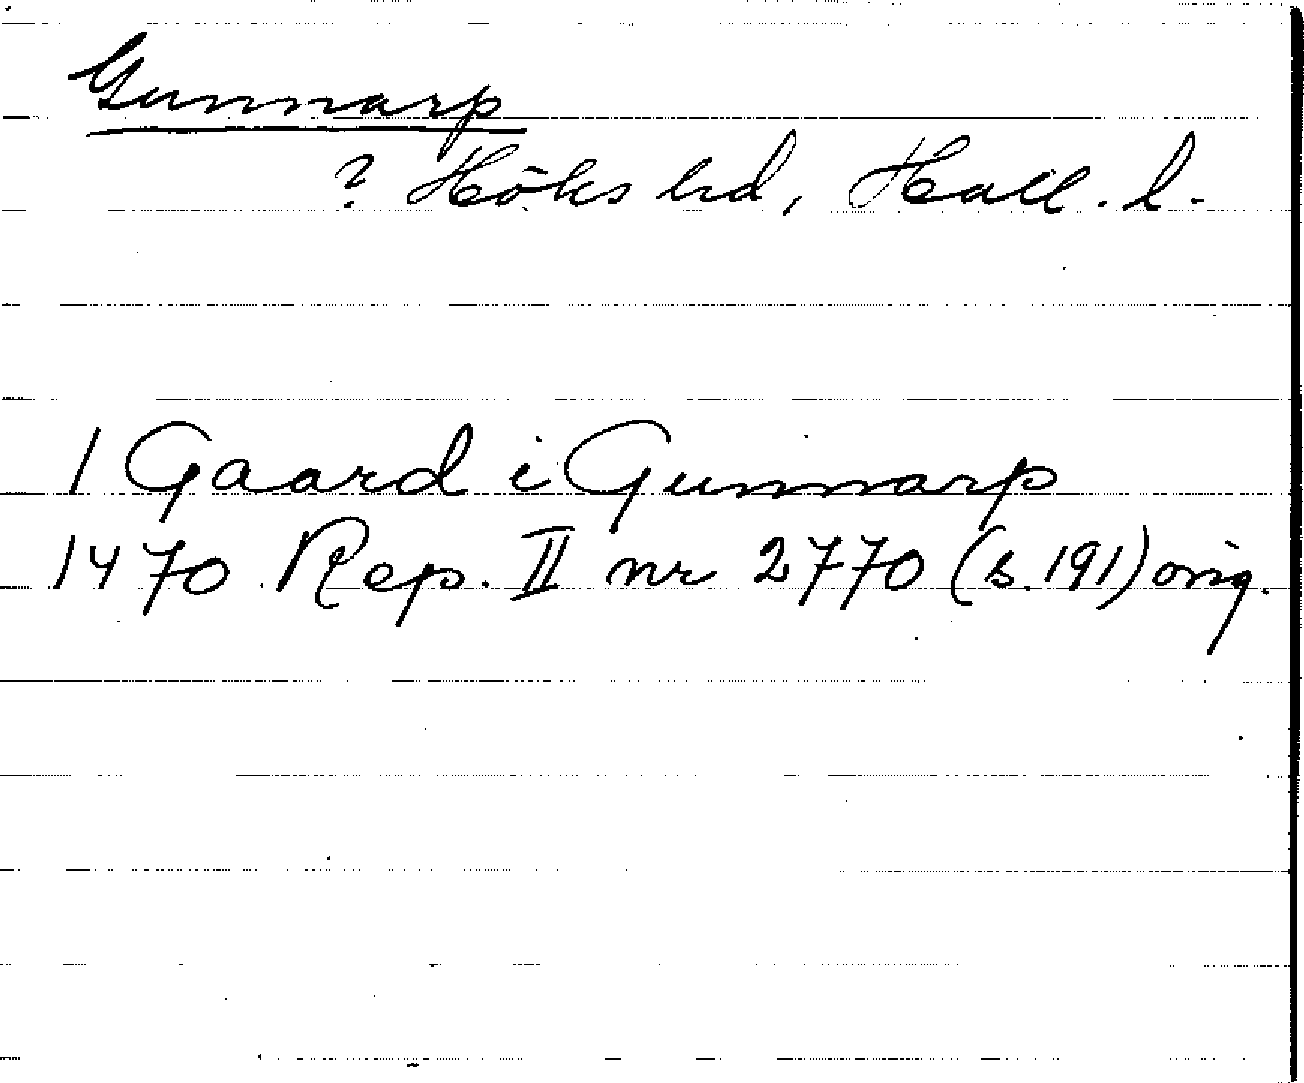 Gunnarp
? Höks hd, Hall. l.
1 Gaard i Gunnarp
1470 Rep. II nr 2770 (s. 191) orig.